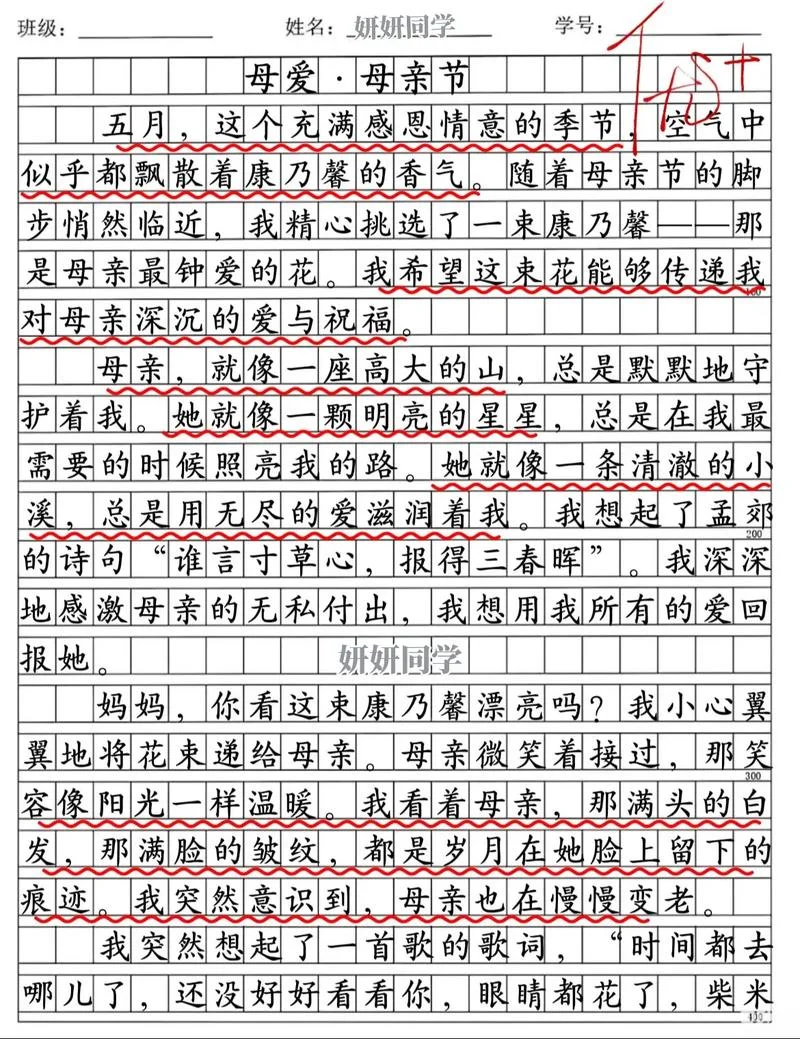 班级： 姓名： 妍妍同学 学号：
优+
母爱·母亲节
五月，这个充满感恩情意的季节，空气中
似乎都飘散着康乃馨的香气。随着母亲节的脚
步悄然临近，我精心挑选了一束康乃馨——那
是母亲最钟爱的花。我希望这束花能够传递我
100
对母亲深沉的爱与祝福。
母亲，就像一座高大的山，总是默默地守
护着我。她就像一颗明亮的星星，总是在我最
需要的时候照亮我的路。她就像一条清澈的小
溪，总是用无尽的爱滋润着我。我想起了孟郊
200
的诗句“谁言寸草心，报得三春晖”。我深深
地感激母亲的无私付出，我想用我所有的爱回
报她。
妍妍同学
妈妈，你看这束康乃馨漂亮吗？我小心翼
翼地将花束递给母亲。母亲微笑着接过，那笑
300
容像阳光一样温暖。我看着母亲，那满头的白
发，那满脸的皱纹，都是岁月在她脸上留下的
痕迹。我突然意识到，母亲也在慢慢变老。
我突然想起了一首歌的歌词，“时间都去
哪儿了，还没好好看看你，眼睛都花了，柴米
400